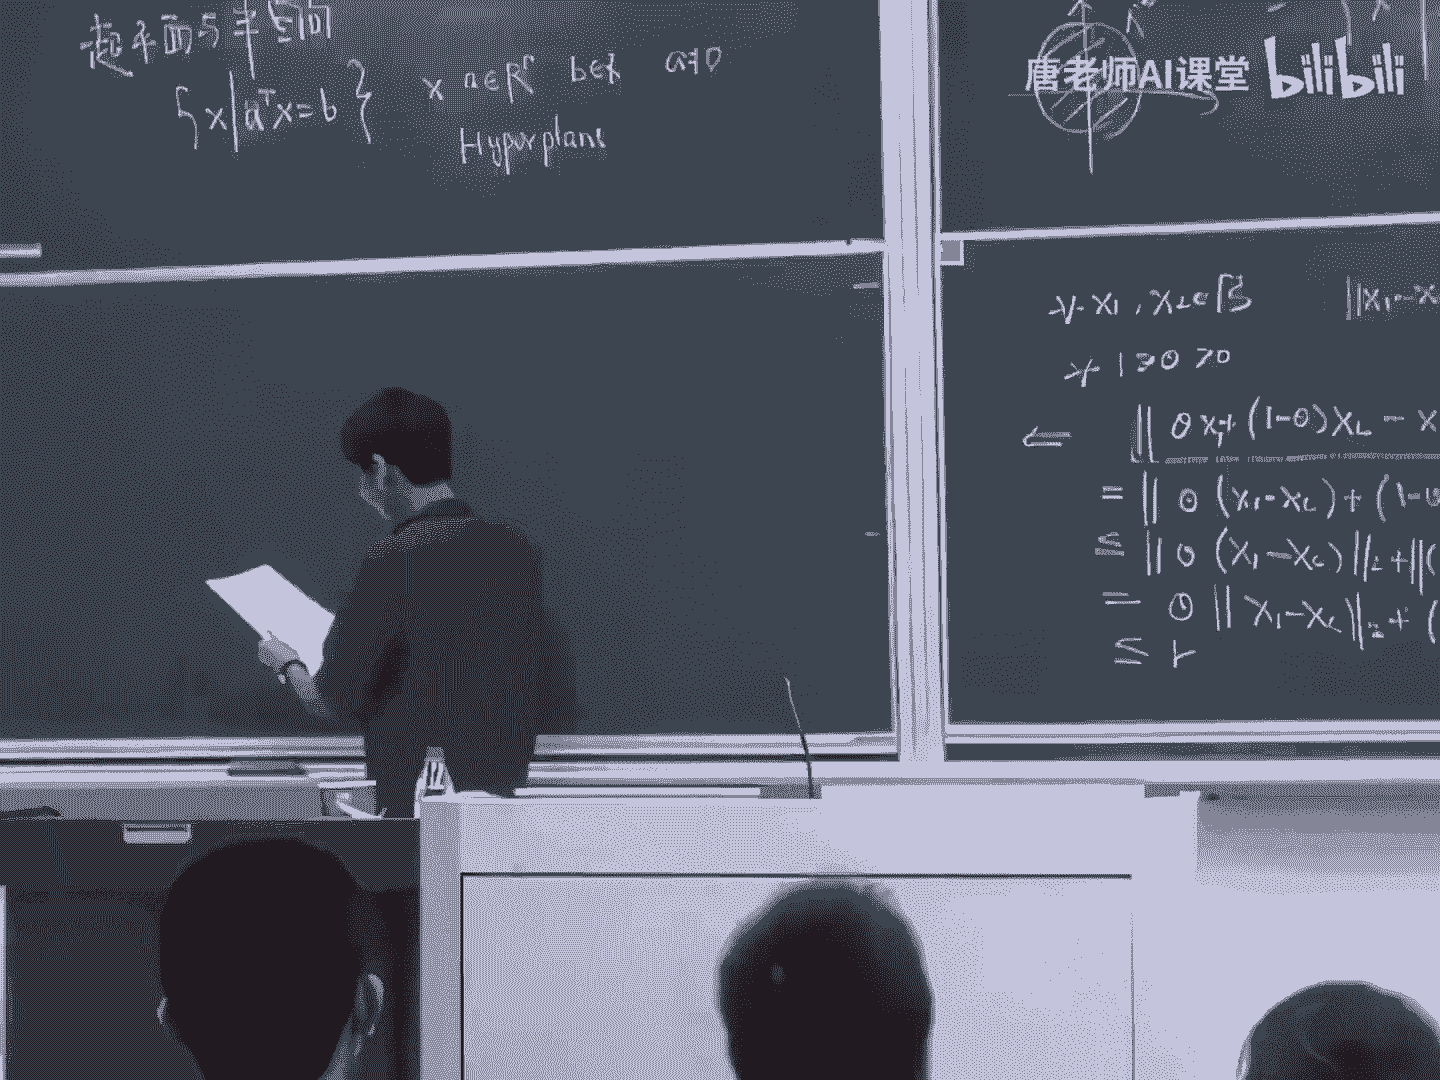 超平面与半空间
{x|aᵀx=b} x a∈Rⁿ b∈R a≠0
Hyperplane
唐老师AI课堂 bilibili
∀ x₁, x₂∈B ||x₁-x
∀ 1≥θ≥0
⇐ ||θx₁+(1-θ)x₂-x
= ||θ(x₁-x_c)+(1-θ
≤ ||θ(x₁-x_c)||₂+||(
= θ||x₁-x_c||₂+(
≤ r